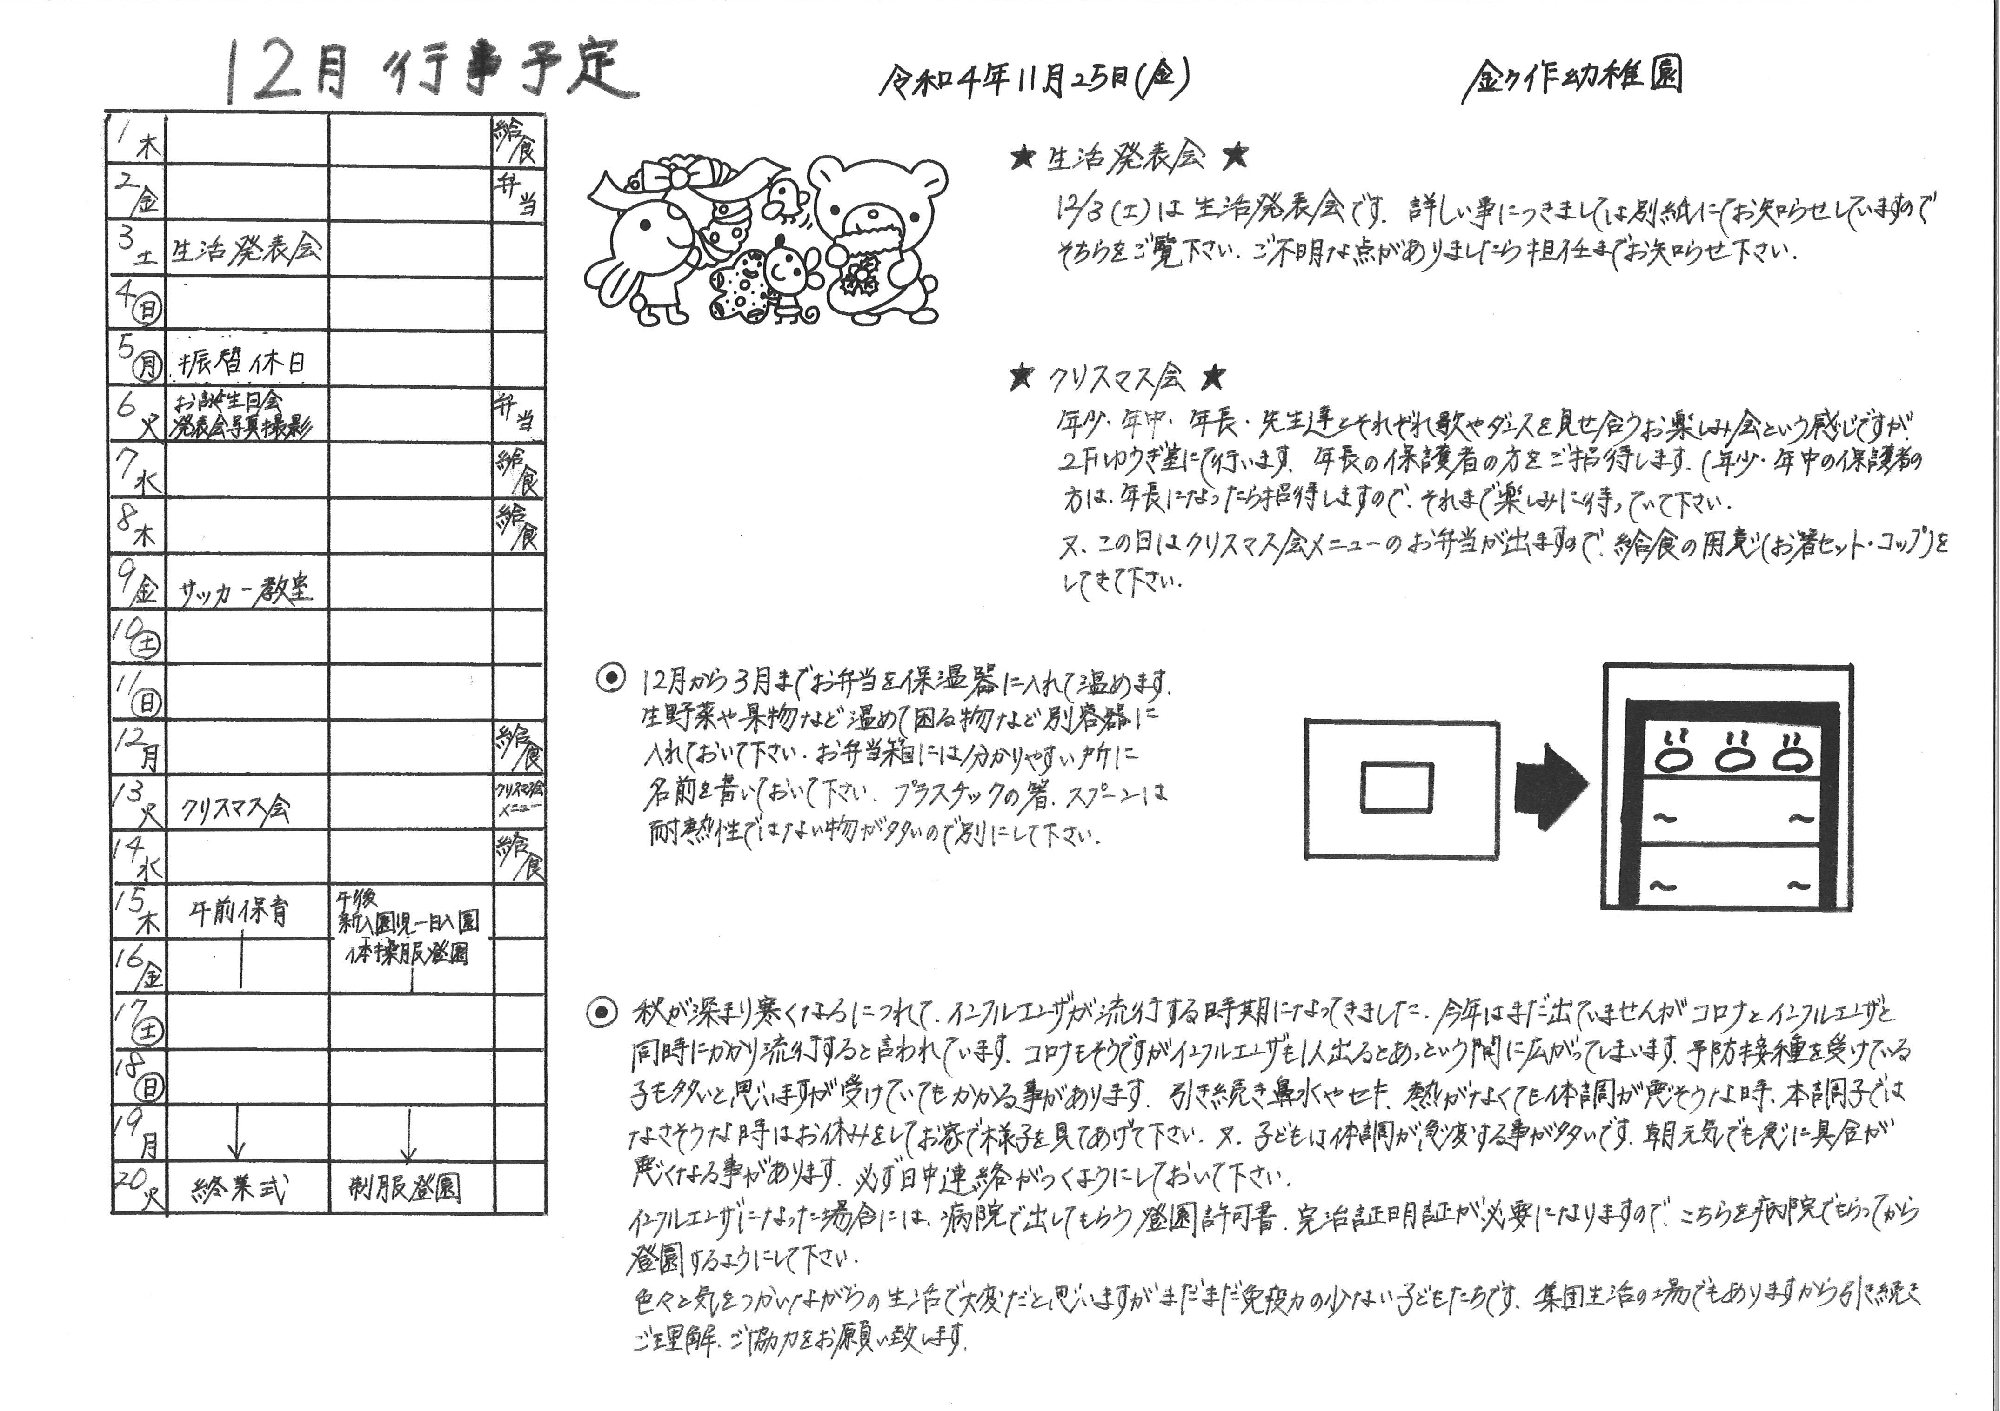 12月 行事予定
令和4年11月25日(金)
金ヶ作幼稚園
1 木 給食
2 金 弁当
3 土 生活発表会
4 日
5 月 振替休日
6 火 お誕生日会 弁当
発表会写真撮影
7 水 給食
8 木 給食
9 金 サッカー教室
10 土
11 日
12 月 給食
13 火 クリスマス会 クリスマス会メニュー
14 水 給食
15 木 午前保育 午後
新入園児一日入園
体操服登園
16 金
17 土
18 日
19 月
20 火 終業式 制服登園
★ 生活発表会 ★
12/3(土)は生活発表会です。詳しい事につきましては別紙にてお知らせしていますので
そちらをご覧下さい。ご不明な点がありましたら担任までお知らせ下さい。
★ クリスマス会 ★
年少・年中・年長・先生達とそれぞれ歌やダンスを見せ合うお楽しみ会という感じですが、
2Fゆうぎ室にて行います。年長の保護者の方をご招待します。(年少・年中の保護者の
方は、年長になったら招待しますので、それまで楽しみに待っていて下さい。
又、この日はクリスマス会メニューのお弁当が出ますので、給食の用意(お箸セット・コップ)を
してきて下さい。
◉ 12月から3月までお弁当を保温器に入れて温めます。
生野菜や果物など温めて困る物など別容器に
入れておいて下さい。お弁当箱には分かりやすい所に
名前を書いておいて下さい。プラスチックの箸、スプーンは
耐熱性ではない物が多いので別にして下さい。
◉ 秋が深まり寒くなるにつれて、インフルエンザが流行する時期になってきました。今年はまだ出ていませんがコロナとインフルエンザと
同時にかかり流行すると言われています。コロナもそうですがインフルエンザも1人出るとあっという間に広がってしまいます。予防接種を受けている
子も多いと思いますが受けていてもかかる事があります。引き続き鼻水やセキ、熱がなくても体調が悪そうな時、本調子では
なさそうな時はお休みをしてお家で様子を見てあげて下さい。又、子どもは体調が急変する事が多いです。朝元気でも急に具合が
悪くなる事があります。必ず日中連絡がつくようにしておいて下さい。
インフルエンザになった場合には、病院で出してもらう登園許可書、完治証明証が必要になりますので、こちらを病院でもらってから
登園するようにして下さい。
色々と気をつかいながらの生活で大変だと思いますがまだまだ免疫力の少ない子どもたちです。集団生活の場でもありますから引き続き
ご理解、ご協力をお願い致します。